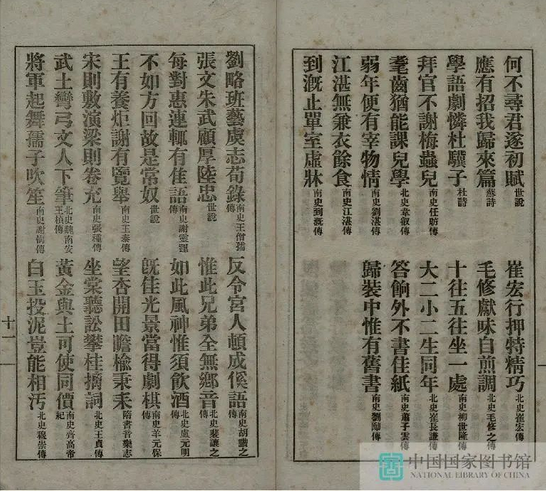 何不尋君遂初賦世說 崔宏行押特精巧北史崔宏傳
應有招我歸來篇蘇詩 毛修獻味自煎調北史毛修之傳
學語劇憐杜驥子杜詩 十往五往坐一處南史柳世隆傳
拜官不謝梅蟲兒南史任昉傳 大二小二生同年北史崔長謙傳
耄齒猶能課兒學北史韋敻傳 答餉外不書佳紙南史蕭子雲傳
弱年便有宰物情南史劉湛傳 歸裝中惟有舊書南史劉善傳
江湛無兼衣餘食南史江湛傳
到漑止單室虛牀南史到漑傳
劉略班藝虞志荀錄南史王僧孺傳 反令宮人頓成傒語南史胡諧之傳
張文朱武顧厚陸忠世說 惟此兄弟全無鄉音北史裴讓之傳
每對惠連輒有佳語南史謝靈運傳 如此風神惟須飲酒北史盧元明傳
不如方回故是常奴世說 旣佳光景當得劇棋南史羊元保傳
王有養炬謝有覽舉南史王泰傳 望杏開田瞻楡秉耒隋書音樂志
宋則敷演梁則卷充南史張種傳 坐棠聽訟攀桂摛詞北史王貞傳
武士彎弓文人下筆北史魏南安王楨傳 黃金與土可使同價南史齊高帝紀
將軍起舞孺子吹笙南史謝傳 白玉投泥豈能相汚北史魏崇傳
十一
中国国家图书馆
NATIONAL LIBRARY OF CHINA